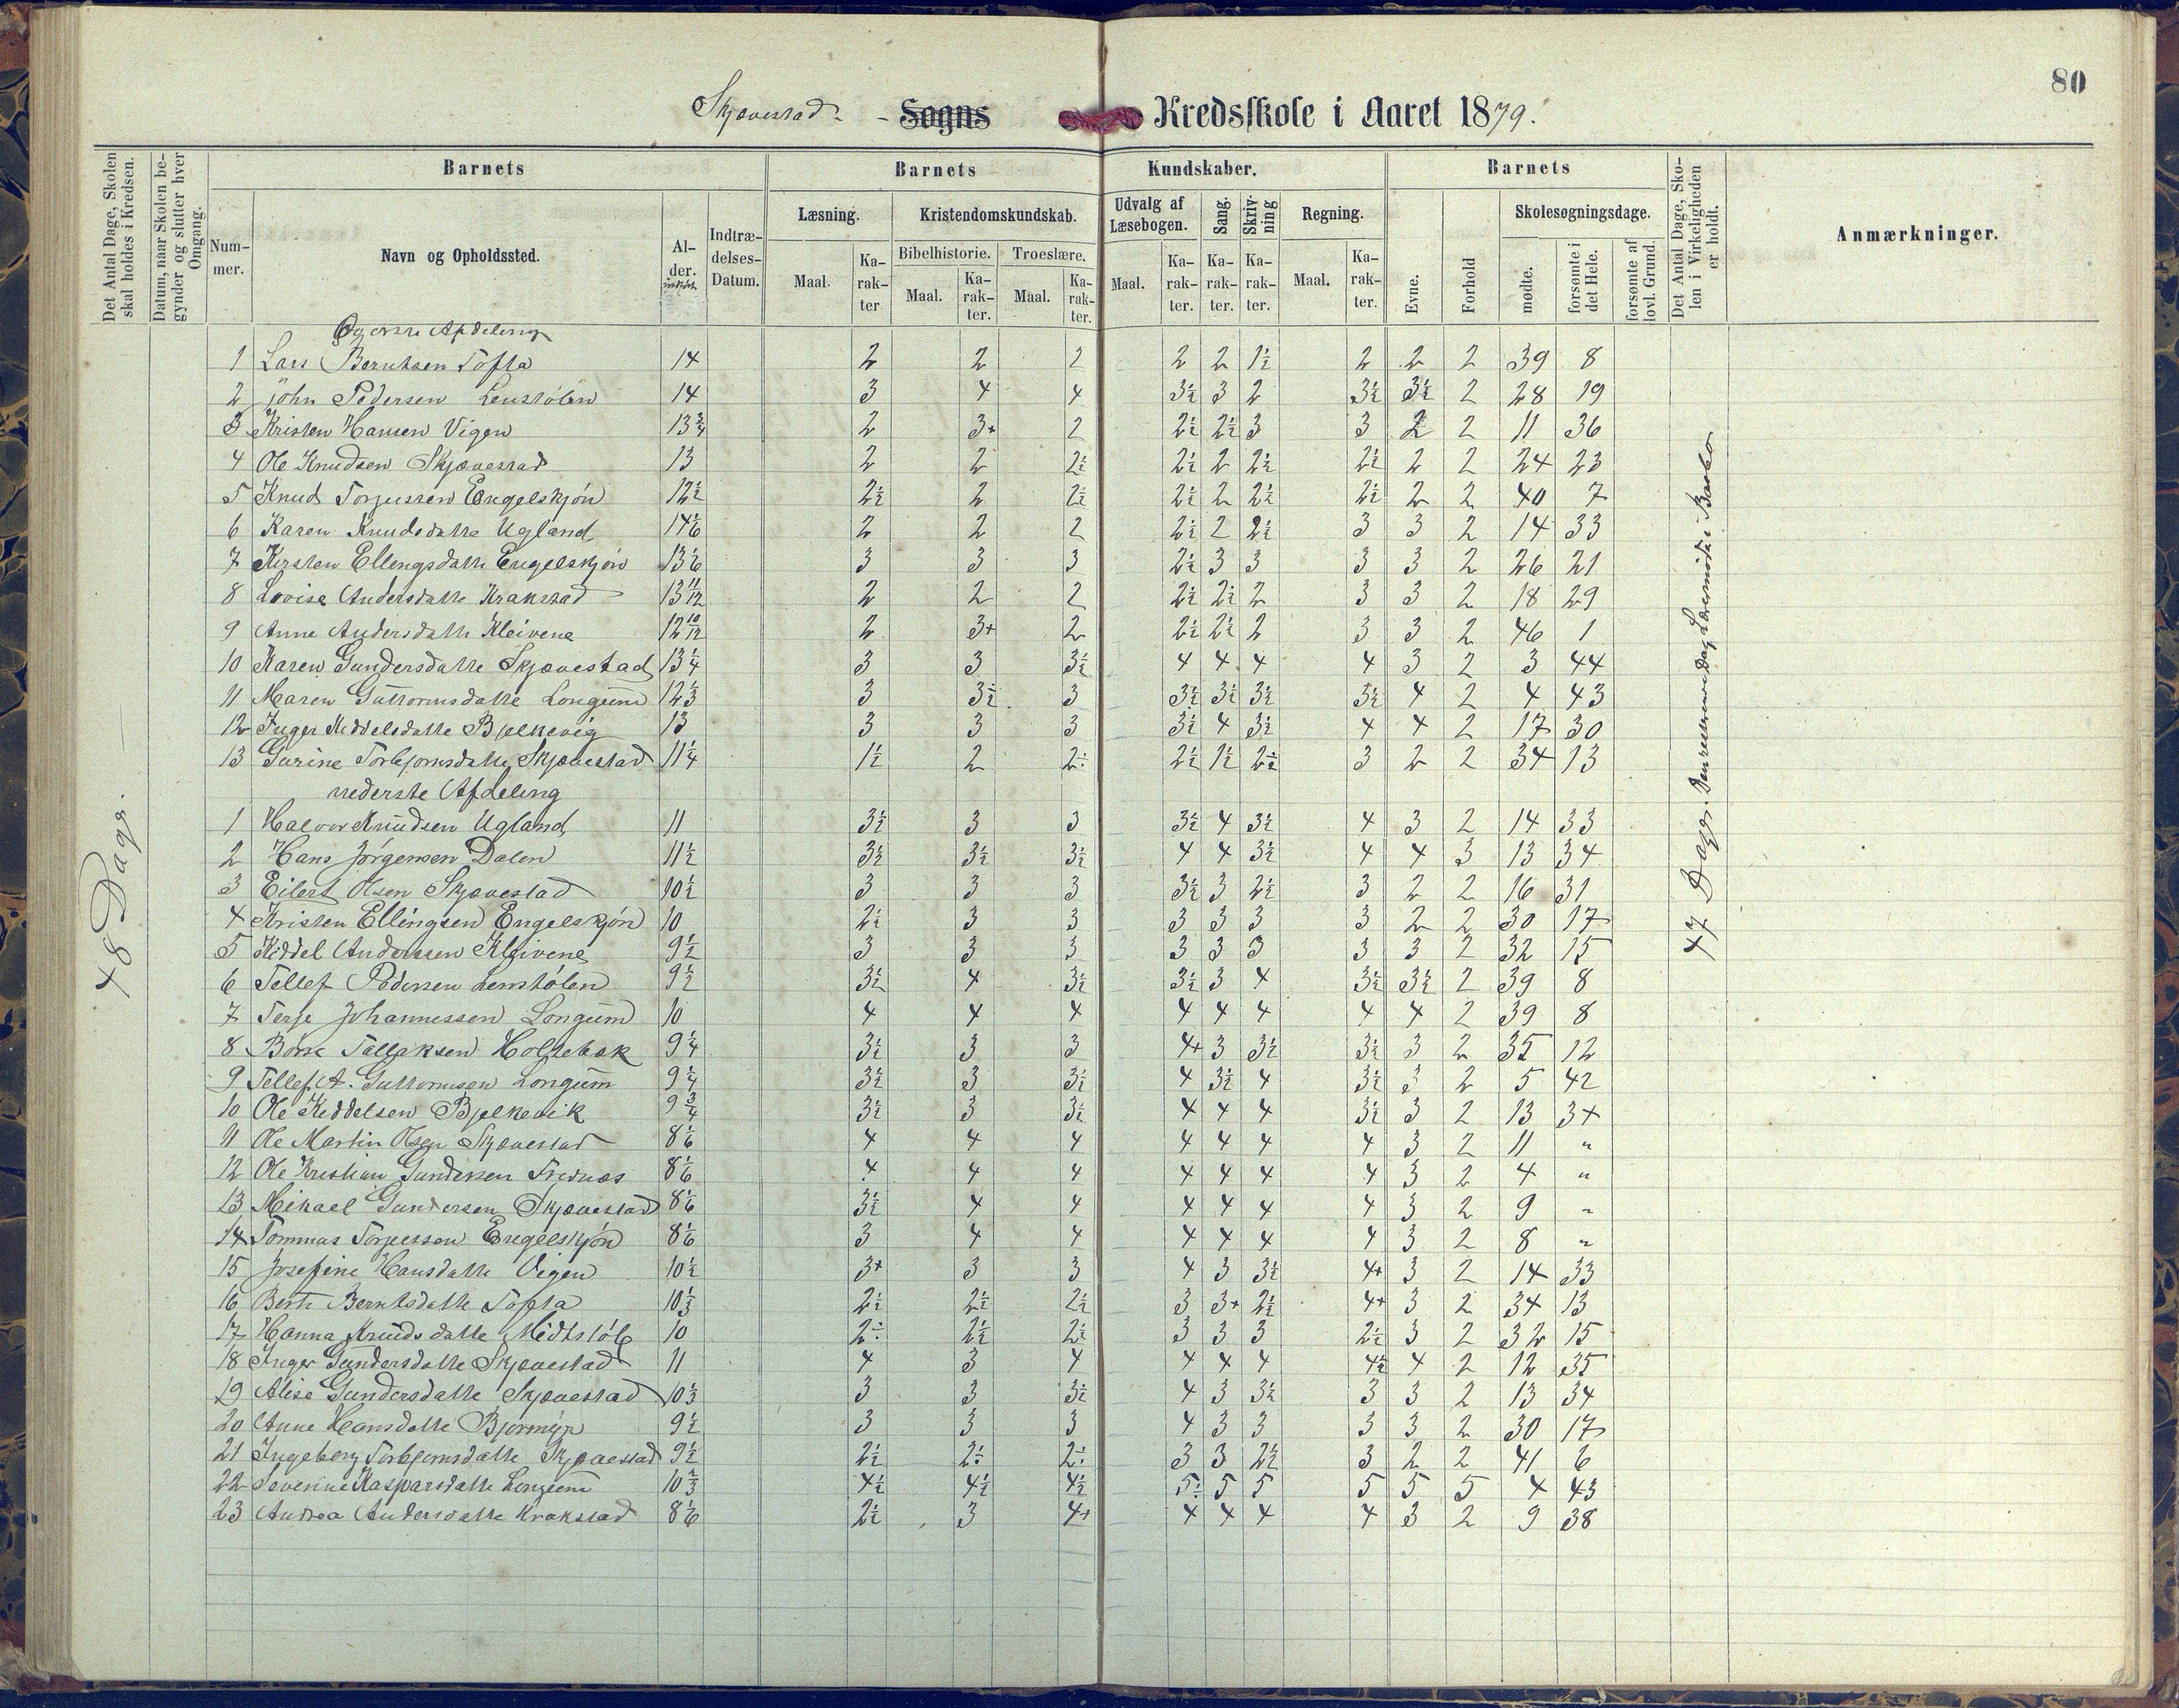 80
Skjævestad - Sogns Kredsskole i Aaret 1879.
Det Antal Dage, Skolen skal holdes i Kredsen.
Datum, naar Skolen begynder og slutter hver Omgang.
Barnets Barnets Kundskaber. Barnets
Det Antal Dage, Skolen i Virkeligheden er holdt.
Anmærkninger.
Nummer. Navn og Opholdssted. Alder. Indtrædelses-Datum.
Læsning. Kristendomskundskab. Udvalg af Læsebogen. Sang. Skrivning Regning. Evne. Forhold Skolesøgningsdage.
Bibelhistorie. Troeslære.
Maal. Karakter Maal. Karakter. Maal. Karakter. Maal. Karakter. Karakter. Karakter. Maal. Karakter. mødte. forsømte i det Hele. forsømte af lovl. Grund.
48 Dage.
47 Dage. Den Lærermöde i Barbo
Öyerste Afdeling
1 Lars Berntsen Tofta 14 2 2 2 2 2 1½ 2 2 2 39 8
2 John Pedersen Lenstölen 14 3 4 4 3½ 3 2 3½ 3½ 2 28 19
3 Kristen Hansen Vigen 13¾ 2 3+ 2 2½ 2½ 3 3 2 2 11 36
4 Ole Knudsen Skjævestad 13 2 2 2½ 2½ 2 2½ 2½ 2 2 24 23
5 Knud Torjussen Engelskjön 12½ 2½ 2 2½ 2½ 2 2½ 2½ 2 2 40 7
6 Karen Knudsdatte Ugland 14 1/6 2 2 2 2½ 2 2½ 3 3 2 14 33
7 Kirsten Ellingsdatte Engelskjön 13 1/6 3 3 3 2½ 3 3 3 3 2 26 21
8 Lovise Andersdatte Krakstad 13 11/12 2 2 2 2½ 2½ 2 3 3 2 18 29
9 Anne Andersdatte Kleivene 12 10/12 2 3+ 2 2½ 2½ 2 3 3 2 46 1
10 Karen Gundersdatte Skjævestad 13¼ 3 3 3½ 4 4 4 4 3 2 3 44
11 Maren Guttormsdatte Longum 12⅓ 3 3½ 3 3½ 3½ 3½ 3½ 4 2 4 43
12 Inger Kiddelsdatte Bjelkevig 13 3 3 3 3½ 4 3½ 4 4 2 17 30
13 Gurine Torbjornsdatte Skjævestad 11¼ 1½ 2 2÷ 2½ 1½ 2½ 3 2 2 34 13
nederste Afdeling
1 Halvor Knudsen Ugland 11 3½ 3 3 3½ 4 3½ 4 3 2 14 33
2 Hans Jörgensen Dalen 11½ 3½ 3½ 3½ 4 4 3½ 4 4 3 13 34
3 Eilert Olsen Skjævestad 10½ 3 3 3 3½ 3 2½ 3 2 2 16 31
4 Kristen Ellingsen Engelskjön 10 2½ 3 3 3 3 3 3 2 2 30 17
5 Kiddel Anderssen Kleivene 9½ 3 3 3 3 3 3 3 3 2 32 15
6 Tellef Pedersen Lenstölen 9½ 3½ 4 3½ 3½ 3 4 3½ 3½ 2 39 8
7 Terje Johannessen Longum 10 4 4 4 4 4 4 4 4 2 39 8
8 Börre Tallaksen Holtebæk 9¼ 3½ 3 3 4+ 3 3½ 3½ 3 2 35 12
9 Tellef A. Guttormsen Longum 9¼ 3½ 3 3½ 4 3½ 4 3½ 3 2 5 42
10 Ole Kiddelsen Bjelkevik 9¾ 3½ 3 3½ 4 4 4 3½ 3 2 13 34
11 Ole Martin Olsen Skjævestad 8 1/6 4 4 4 4 4 4 4 3 2 11 "
12 Ole Kristian Gundersen 8 1/6 4 4 4 4 4 4 4 3 2 4 "
13 Mikael Gundersen Skjævestad 8 1/6 3½ 4 4 4 4 4 4 3 2 9 "
14 Tommas Torjussen Engelskjön 8 1/6 3 4 4 4 4 4 4 3 2 8 "
15 Josefine Hansdatte Vigen 10½ 3+ 3 3 4 3 3½ 4+ 3 2 14 33
16 Berte Berntsdatte Tofta 10⅓ 2½ 2½ 2½ 3 3+ 2½ 4+ 3 2 34 13
17 Hanna Knudsdatte Midtstöle 10 2÷ 2½ 2½ 3 3 3 2½ 3 2 32 15
18 Inger Gundersdatte Skjævestad 11 4 3 4 4 4 4 4½ 4 2 12 35
19 Alise Gundersdatte Skjævestad 10⅓ 3 3 3½ 4 3 3½ 3 3 2 13 34
20 Anne Hansdatte Bjormyr 9½ 3 3 3 4 3 3 3 3 2 30 17
21 Ingeborg Torbjornsdatte Skjævestad 9½ 2½ 2÷ 2÷ 3 3 2½ 3 2 2 41 6
22 Severine Kaspersdatte Longum 10⅔ 4½ 4½ 4½ 5÷ 5 5 5 5 5 4 43
23 Andrea Andersdatte Krakstad 8 1/6 2½ 3 4+ 4 4 4 4 3 2 9 38